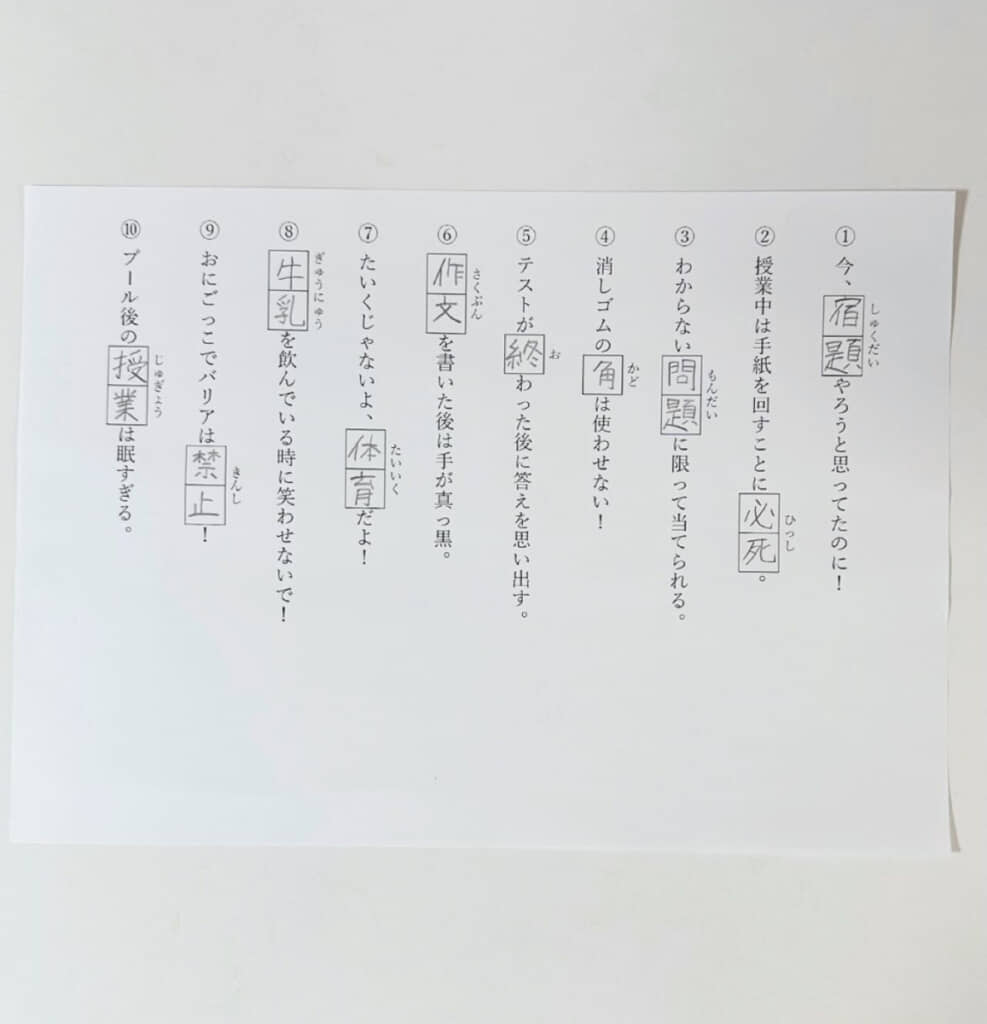 ① 今、宿題やろうと思ってたのに！
しゅくだい
② 授業中は手紙を回すことに必死。
ひっし
③ わからない問題に限って当てられる。
もんだい
④ 消しゴムの角は使わせない！
かど
⑤ テストが終わった後に答えを思い出す。
お
⑥ 作文を書いた後は手が真っ黒。
さくぶん
⑦ たいくじゃないよ、体育だよ！
たいいく
⑧ 牛乳を飲んでいる時に笑わせないで！
ぎゅうにゅう
⑨ おにごっこでバリアは禁止！
きんし
⑩ プール後の授業は眠すぎる。
じゅぎょう